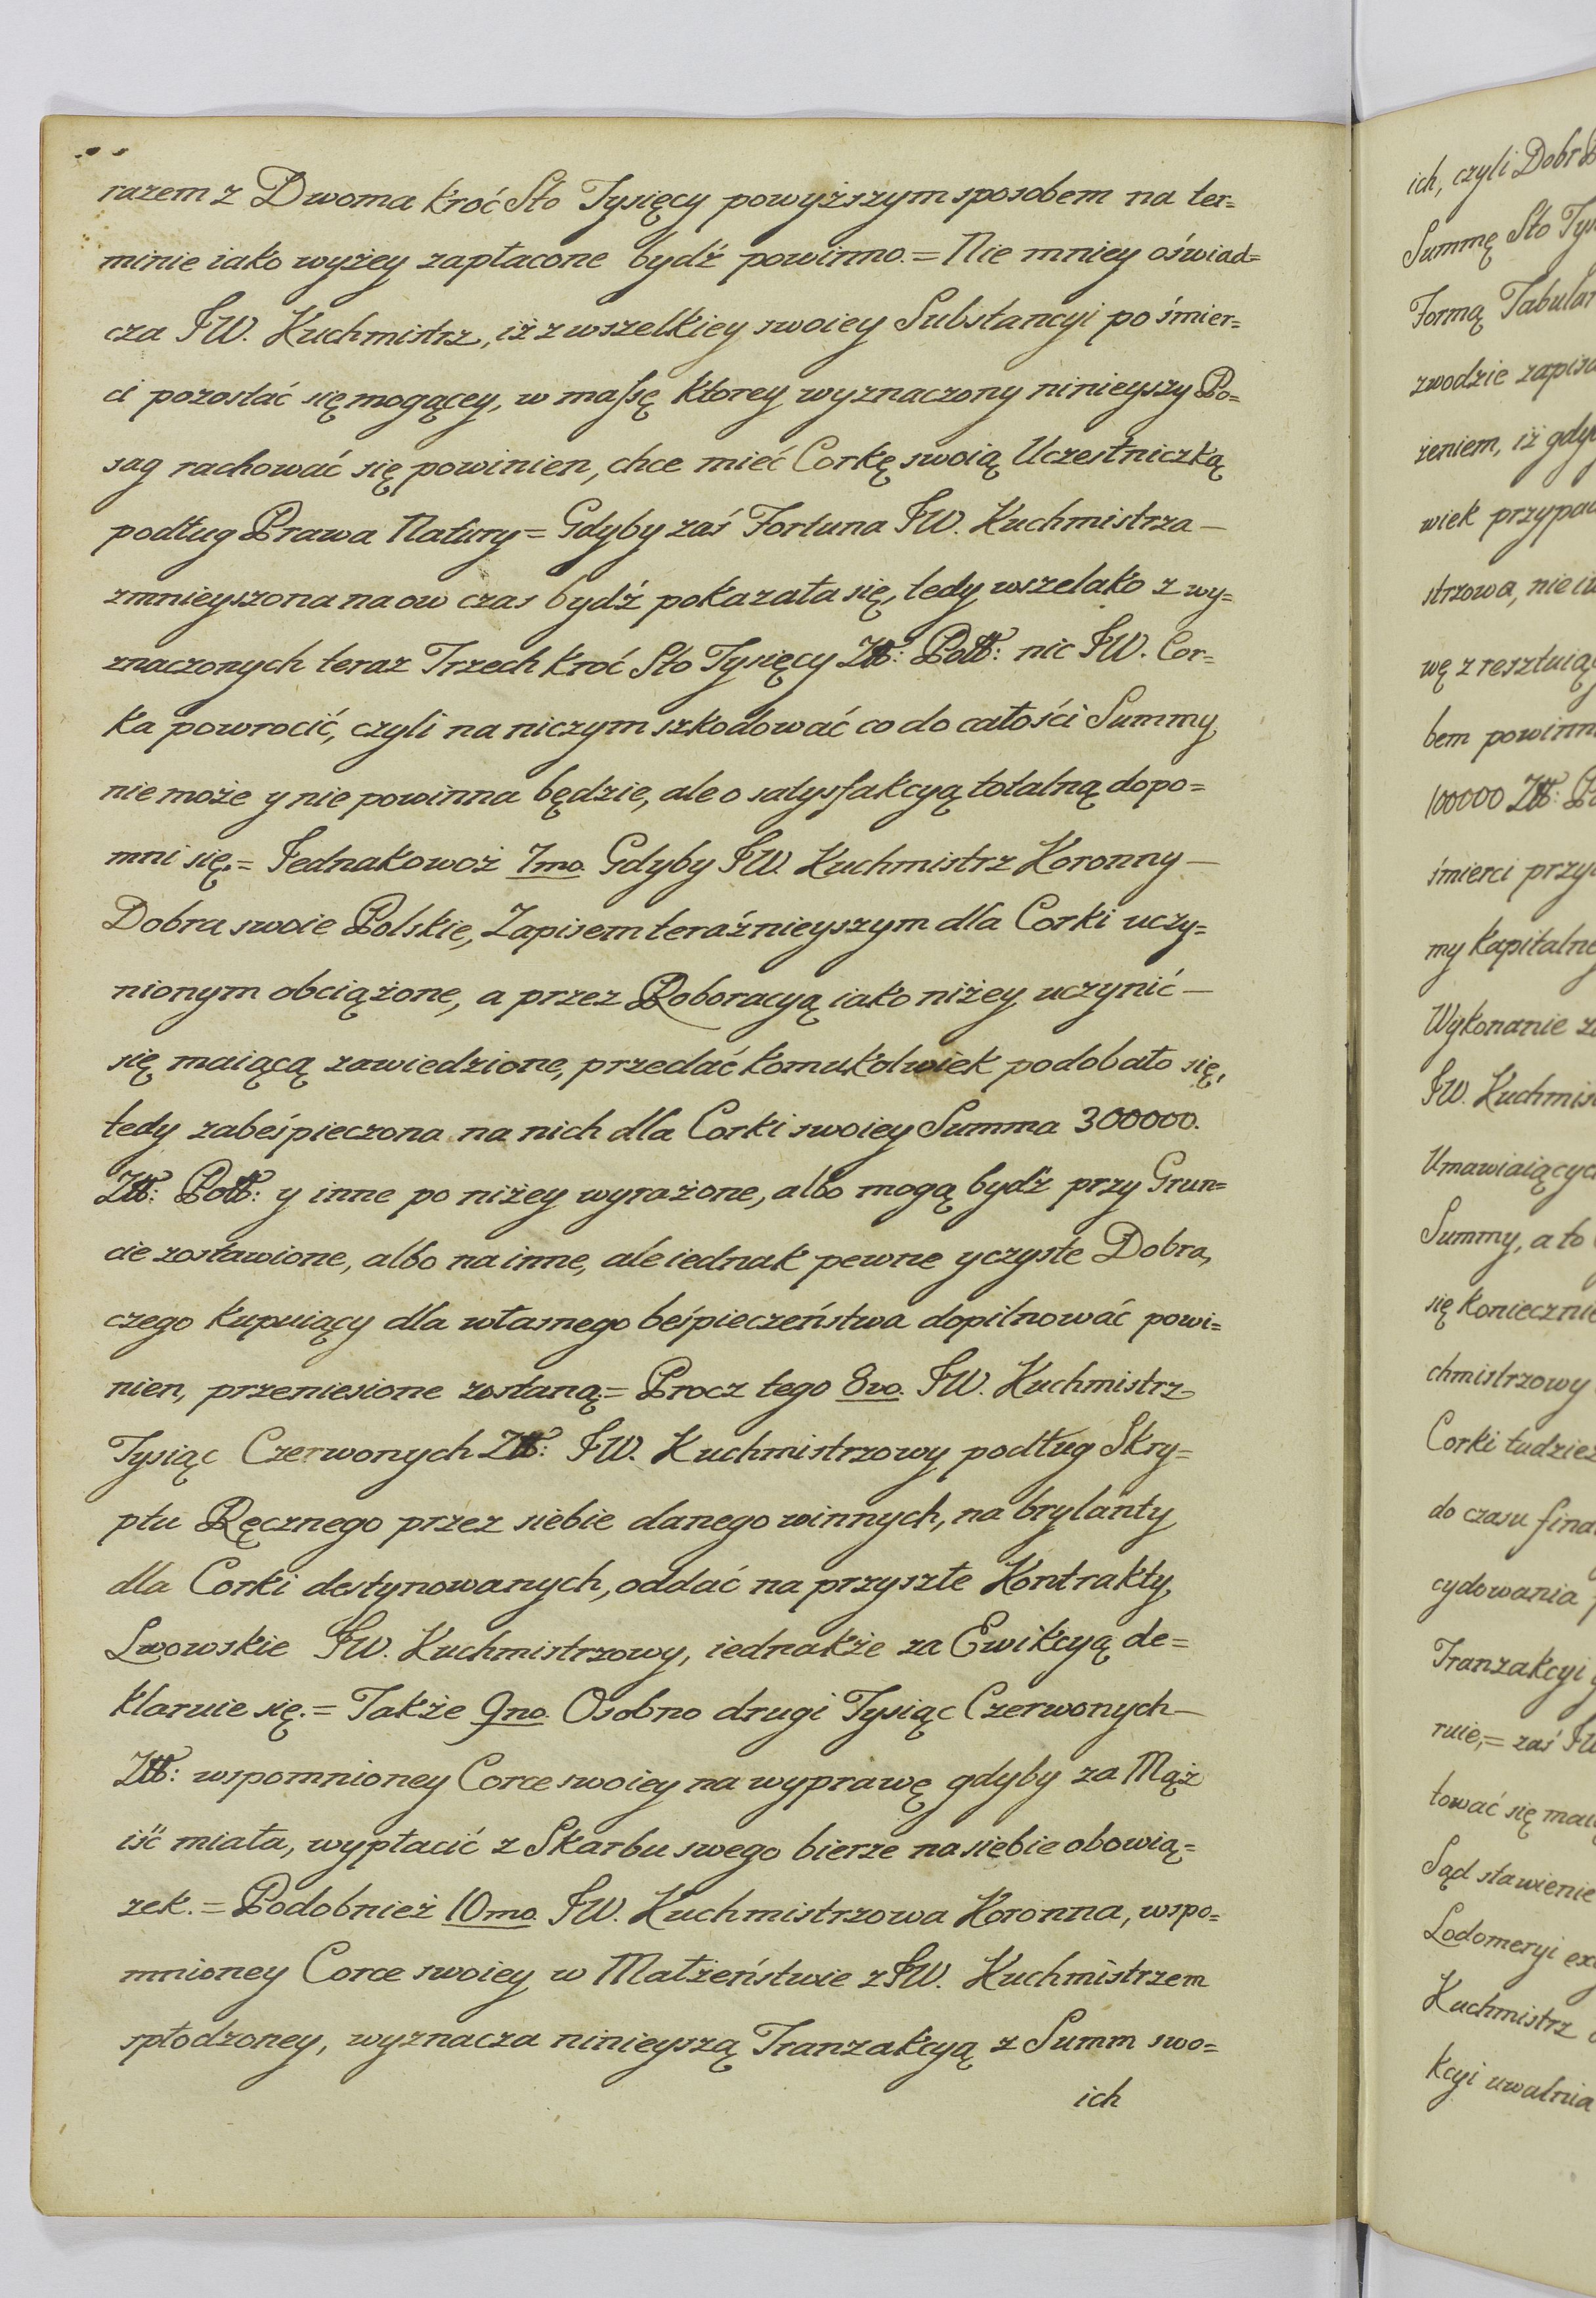 razem z Dwoma kroć Sto Tysięcy powyższym sposobem na ter=
minie iako wyżey zapłacone bydź powinno.= Nie mniey oświad=
cza JW. Kuchmistrz, iż z wszelkiey swoiey Substancyi po śmier=
ci pozostać się mogącey, w maſsę ktorey wyznaczony ninieyszy Po=
sag rachować się powinien, chce mieć Corkę swoią Uczestniczką
podług Prawa Natury = Gdyby zaś Fortuna JW. Kuchmistrza —
zmnieyszona na ow czas bydź pokazała się, tedy wszelako z wy=
znaczonych teraz Trzech kroć Sto Tysięcy Złł: Poll: nic JW. Cor=
ka powrocić, czyli na niczym szkodować co do całości Summy
nie może y nie powinna będzie, ale o satysfakcyą totalną dopo=
mni się.= Jednakowoż 7mo. Gdyby JW. Kuchmistrz Koronny —
Dobra swoie Polskie, Zapisem teraźnieyszym dla Corki uczy=
nionym obciążone, a przez Roboracyą iako niżey uczynić —
się maiącą zawiedzione, przedać komukolwiek podobało się,
tedy zabeśpieczona na nich dla Corki swoiey Summa 300000.
Złł: Poll: y inne po niżey wyrażone, albo mogą bydź przy Grun=
cie zostawione, albo na inne, ale iednak pewne y czyste Dobra,
czego kupuiący dla własnego beśpieczeństwa dopilnować powi=
nien, przeniesione zostaną.= Procz tego 8vo. JW. Kuchmistrz
Tysiąc Czerwonych Złł: JW. Kuchmistrzowy podług Skry=
ptu Ręcznego przez siebie danego winnych, na brylanty
dla Corki destynowanych, oddać na przyszłe Kontrakty
Lwowskie JW. Kuchmistrzowy, iednakże za Ewikcyą de=
klaruie się.= Także 9no. Osobno drugi Tysiąc Czerwonych —
Złł: wspomnioney Corce swoiey na wyprawę gdyby za Mąż
iść miała, wypłacić z Skarbu swego bierze na siebie obowią=
zek.= Podobnież 10mo. JW. Kuchmistrzowa Koronna, wspo=
mnioney Corce swoiey w Małżeństwie z JW. Kuchmistrzem
spłodzoney, wyznacza ninieyszą Tranzakcyą z Summ swo=
ich
ich, czyli Dobr
Summę Sto
Formą
zwodzie
żeniem, iż
wiek
strzowa, nie
wę z
bem
100000 Złł:
śmierci
my Kapitalne
Wykonanie
JW.
Summy, a to
się koniecznie
chmistrzowy
Corki tudzież
do czasu
cydowania
Tranzakcyi
ruie,= zaś
tować się
Sąd stawienie
Lodomeryi
Kuchmistrz
kcyi uwalnia